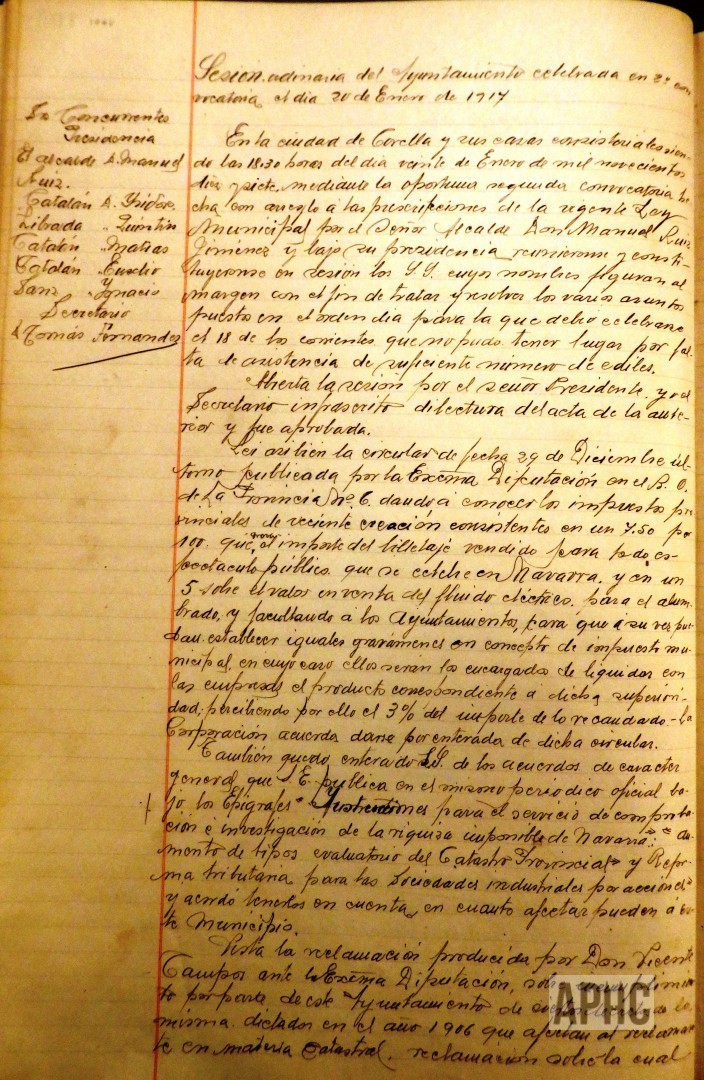 Sesion ordinaria del Ayuntamiento celebrada en 2ª con
vocatoria el dia 20 de Enero de 1917
Sres Concurrentes
Presidencia
El alcalde D. Manuel
Ruiz.
Catalán D. Isidoro
Librada " Quintin
Catalán " Matias
" Eusebio
Sanz " Ignacio
Secretario
D Tomás Fernandez
En la ciudad de Corella y sus casas consistoriales sien-
do las 18:30 horas del dia veinte de Enero de mil novecientos
diez y siete, mediante la oportuna segunda convocatoria he
cha con arreglo á las prescripciones de la vigente Ley
Municipal por el Señor Alcalde Don Manuel Ruiz
Jimenez y bajo su presidencia reunieronse y consti-
tuyeronse en sesion los S.S. cuyos nombres figuran al
margen con el fin de tratar y resolver los varios asuntos
puestos en el orden dia para la que debio celebrarse
el 18 de los corrientes que no pudo tener lugar por fal-
ta de asistencia de suficiente número de ediles.
Abierta la sesion por el señor Presidente, yo el
Secretario infrascrito di lectura del acta de la ante-
rior y fue aprobada.
Lei asi bien la circular de fecha 29 de Diciembre úl-
timo publicada por la Excma Diputación en el B. O.
de La Provincia Nº 6. dando á conocer los impuestos pro
vinciales de reciente creación consistentes en un 7.50 por
100. que grava el importe del billetaje vendido para todo es-
pectaculo público que se celebre en Navarra. y en un
5 sobre el valor en venta del fluido eléctrico. para el alum-
brado, y facultando á los Ayuntamientos, para que á su vez pue
dan establecer iguales gravamenes en concepto de impuesto mu-
nicipal, en cuyo caso ellos seran los encargados de liquidar con
las empresas el producto correspondiente a dicha superiori-
dad, percibiendo por ello el 3% del importe de lo recaudado.- La
Corporación acuerda darse por enterada de dicha circular.
Tambien quedo enterado S.S. de los acuerdos de caracter
general que S.E. publica en el mismo periodico oficial ba-
jo los Epigrafes "Instrucciones para el servicio de comproba-
ción é investigación de la riqueza imponible de Navarra": "Au-
mento de tipos evaluatorio del Catastro Provincial" y "Refor-
ma tributaria para las Sociedades industriales por acciones"
y acordo tenerlos en cuenta, en cuanto afectar pueden á es-
te Municipio.
Vista la reclamación producida por Don Vicente
Campos ante la Excma Diputación, sobre cumplimien
to por parte de este Ayuntamiento de de la
misma dictados en el año 1906 que afectan al reclaman
te en materia catastral. reclamacion sobre la cual
APHC